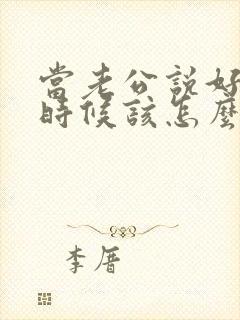 當老公說好
時候該怎麼
李厝